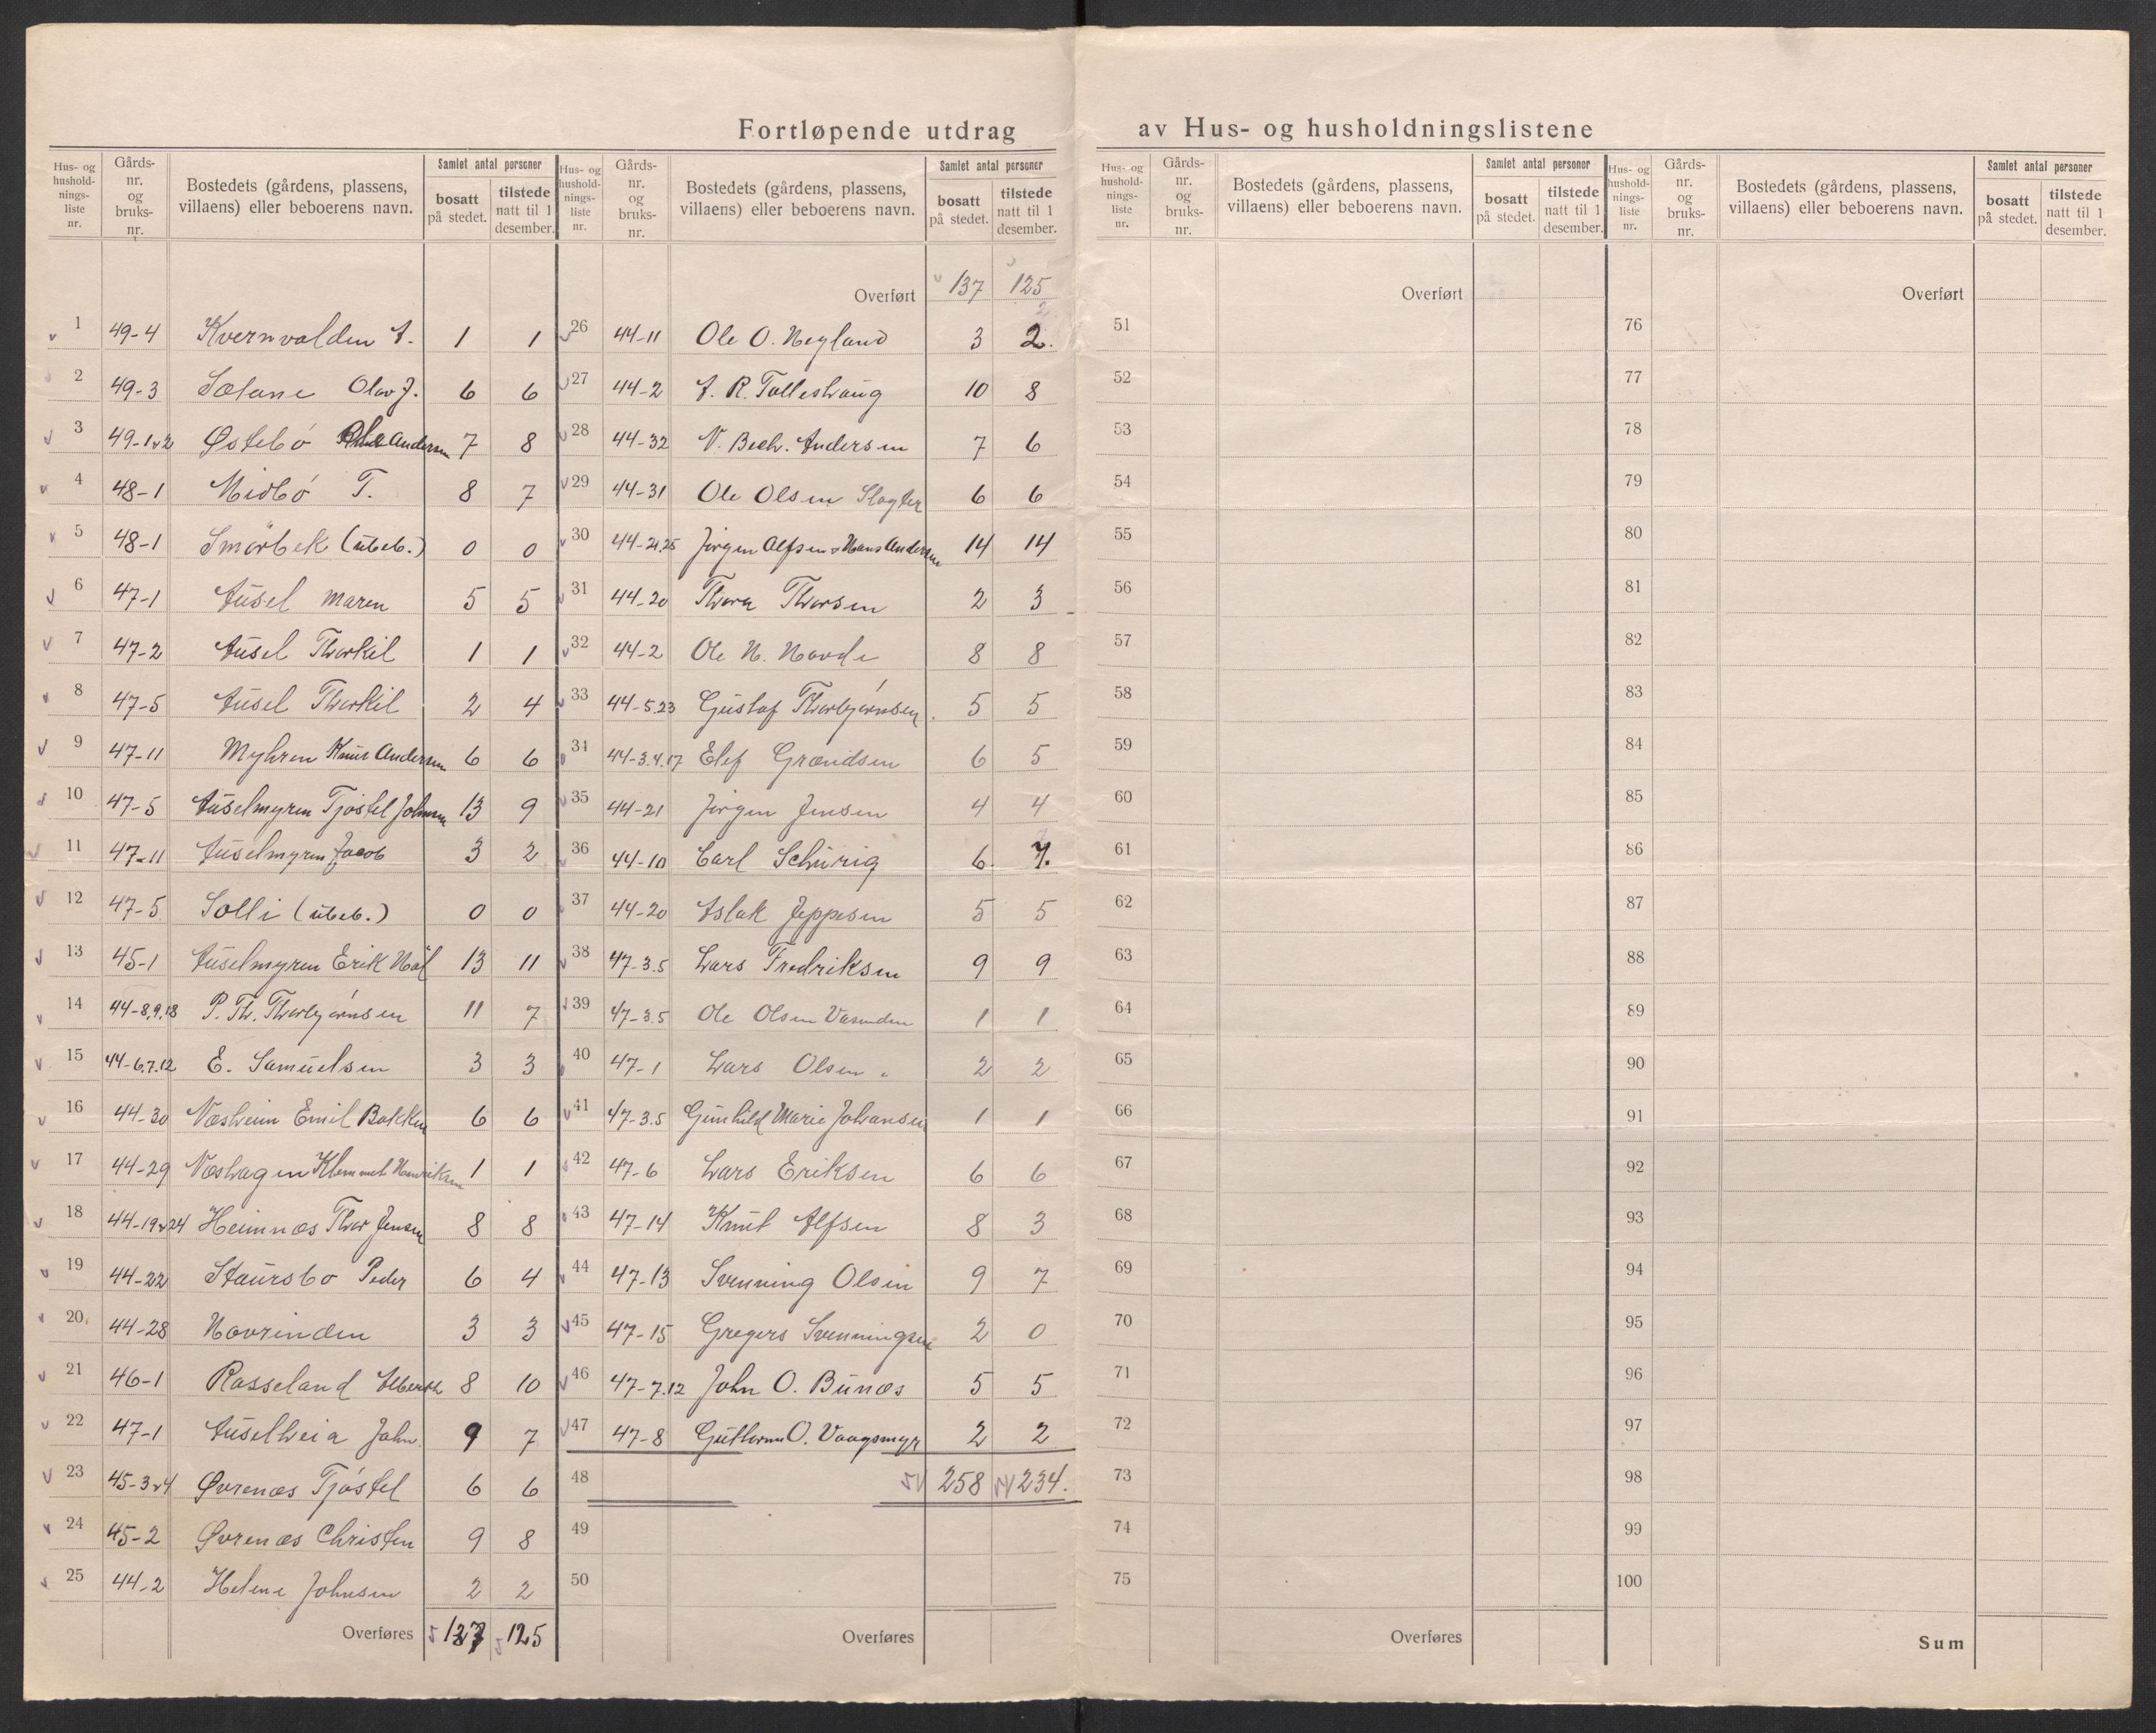 Fortløpende utdrag av Hus- og husholdningslistene
Hus- og hushold-nings-liste nr. | Gårds-nr. og bruks-nr. | Bostedets (gårdens, plassens, villaens) eller beboerens navn. | Samlet antal personer | bosatt på stedet. | tilstede natt til 1 desember.
1 49-4 Kvernvolden A. 1 1
2 49-3 Sølane Olav J. 6 6
3 49-1&2 Østebó Andersen 7 8
4 48-1 Midbó T. 8 7
5 48-1 Smörbek (ubeb.) 0 0
6 47-1 Ausel Maren 5 5
7 47-2 Ausel Thorkil 1 1
8 47-5 Ausel Thorkil 2 4
9 47-11 Myhren Knut Andersen 6 6
10 47-5 Auselmyren Tjóstel Johnsen 13 9
11 47-11 Auselmyren Jacob 3 2
12 47-5 Solli (ubeb.) 0 0
13 45-1 Auselmyren Erik 13 11
14 44-8.9.18 P. Th. Thorbjørnsen 11 7
15 44-6.7.12 E. Samuelsen 3 3
16 44-30 Næsheim Emil Bakken 6 6
17 44-29 Næshagen Klemmet Henriksen 1 1
18 44-19&24 Heimnæs Thor Jensen 8 8
19 44-22 Staursbo Peder 6 4
20 44-28 Havrinden 3 3
21 46-1 Rosseland Alberth 8 10
22 47-1 Auselheia John 9 7
23 45-3&4 Øvrenæs Tjóstel 6 6
24 45-2 Øvrenæs Christen 9 8
25 44-2 Helene Johnsen 2 2
Overføres 137 125
Hus- og hushold-nings-liste nr. | Gårds-nr. og bruks-nr. | Bostedets (gårdens, plassens, villaens) eller beboerens navn. | Samlet antal personer | bosatt på stedet. | tilstede natt til 1 desember.
Overført 137 125
26 44-11 Ole O. Høyland 3 2.
27 44-2 A. R. Tolleshaug 10 8
28 44-32 N. Bech. Andersen 7 6
29 44-31 Ole Olsen Slagter 6 6
30 44-21.25 Jørgen Alfsen & Hans Andersen 14 14
31 44-20 Thora Thorsen 2 3
32 44-2 Ole N. Hovde 8 8
33 44-5.23 Gustaf Thorbjørnsen 5 5
34 44-3.4.17 Elef Grændsen 6 5
35 44-21 Jørgen Jensen 4 4
36 44-10 Carl Schurig 6 7.
37 44-20 Aslak Jeppesen 5 5
38 47-3.5 Lars Fredriksen 9 9
39 47-3.5 Ole Olsen 1 1
40 47-1 Lars Olsen 2 2
41 47-3.5 Gunhild Marie Johansen 1 1
42 47-6 Lars Eriksen 6 6
43 47-14 Knut Alfsen 8 3
44 47-13 Svenning Olsen 9 7
45 47-15 Gregers Svenningsen 2 0
46 47-7.12 John O. Bunæs 5 5
47 47-8 Guttorm O. Vaagsmyr 2 2
48 258 234.
49
50
Overføres
Hus- og hushold-nings-liste nr. | Gårds-nr. og bruks-nr. | Bostedets (gårdens, plassens, villaens) eller beboerens navn. | Samlet antal personer | bosatt på stedet. | tilstede natt til 1 desember.
Overført
51
52
53
54
55
56
57
58
59
60
61
62
63
64
65
66
67
68
69
70
71
72
73
74
75
Overføres
Hus- og hushold-nings-liste nr. | Gårds-nr. og bruks-nr. | Bostedets (gårdens, plassens, villaens) eller beboerens navn. | Samlet antal personer | bosatt på stedet. | tilstede natt til 1 desember.
Overført
76
77
78
79
80
81
82
83
84
85
86
87
88
89
90
91
92
93
94
95
96
97
98
99
100
Sum